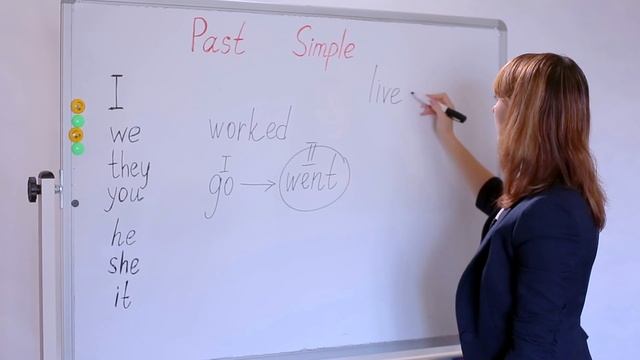 Past Simple
live
I
we
they
you
he
she
it
worked
I II
go → went